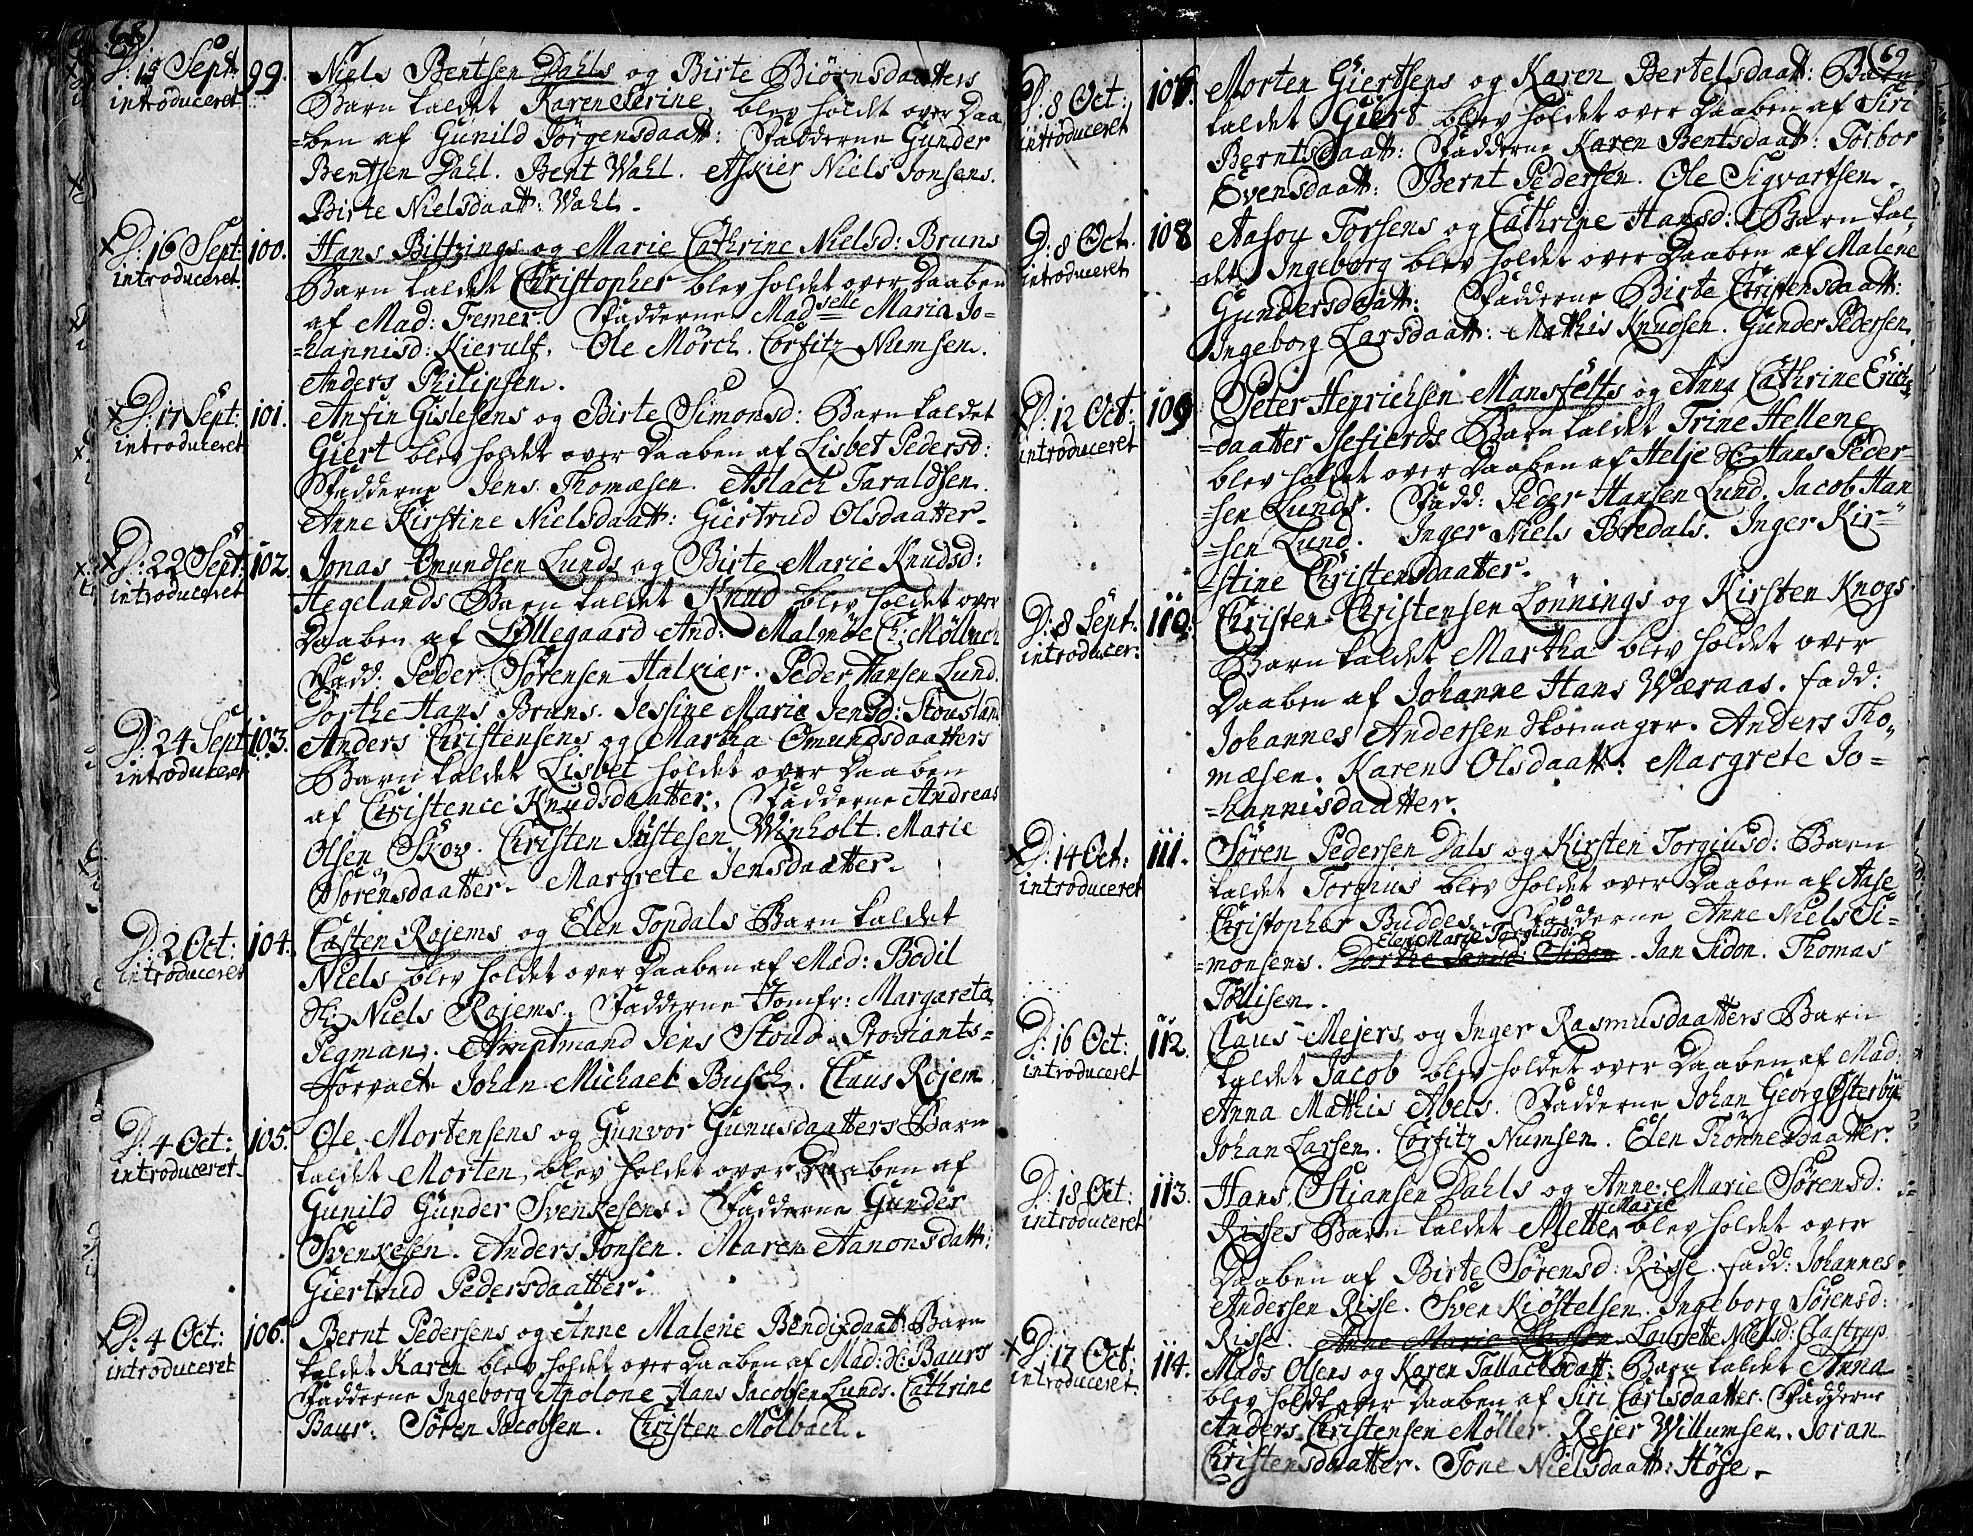 68)
D: 15 Sept: 99. Niels Bentsen Dahls og Birte Biörnsdaatters
introduceret Barn kaldet Karen Serine, blev holdt over Daa
=ben af Gunild Jörgensdaatt: Fadderne Gunder
Bentsen Dahl. Bent Wahl. Askier Niels Jonsens.
Birte Nielsdaatt: Wahl.
D: 16 Sept: 100. Hans Biltzings og Marie Cathrine Nielsd: Bruns
introduceret. Barn kaldet Christopher blev holdet over Daaben
af Mad: Femer. Fadderne Madselle Maria Jo=
=hannisd: Kierulf. Ole Mörch. Corfitz Numsen.
Anders Philipsen.
D: 17 Sept: 101. Anfin Gislesens og Birte Simonsd: Barn kaldet
introduceret Giert blev holdet over Daaben af Lisbet Pedersd:
Fadderne Jens Thomæsen. Aslach Taraldsen.
Anne Kirstine Nielsdaatt: Giertrud Olsdaatter.
D: 22 Sept: 102 Jonas Omundsen Lunds og Birte Marie Knudsd:
introduceret Hegelands Barn kaldet Knud blev holdet over
Daaben af Lollegaard And: Malmöe Ch: Mölbach
Fadd: Peder Sørensen Halkiær. Peder Hansen Lund.
Dorthe Hans Bruns. Jessine Marie Jensd: Stousland
D: 24 Sept 103. Anders Christensens og Martha Omundsdaatters
introduceret Barn kaldet Lisbet holdet over Daaben
af Christence Knudsdaatter. Fadderne Andreas
Olsen Skov. Christen Justesen Winholt. Marie
Sörensdaatter. Margrete Jensdaatter.
D: 2 Oct: 104. Casten Rojems og Elen Topdals Barn kaldet
introduceret Niels blev holdet over Daaben af Mad: Bodil
Sl: Niels Rojems. Fadderne Jomfr: Margareta
Pegman. Amptmand Jens Stoud. Proviants=
Forvalt: Johan Michael Busch. Claus Rojem
D: 4 Oct: 105. Ole Mortensens og Gunvor Gunusdaatters Barn
introduceret. kaldet Morten, blev holdet over Daaben af
Gunild Gunder Svenkesens. Fadderne Gunder
Svenkesen. Anders Jonsen. Maren Aanonsdatt:
Giertrud Pedersdaatter.
D: 4 Oct: 106. Bernt Pedersens og Anne Malene Bendixdaatt: Barn
introduceret kaldet Karen blev holdet over Daaben af Mad: Sl: Baurs
Fadderne Ingeborg Apolone Hans Jacobsen Lunds. Cathrine
Baur. Sören Jacobsen. Christen Mölbach.
69
D: 8 Oct: 107. Morten Giertsens og Karen Bertelsdaatt: Barn
introduceret kaldet Giert blev holdet over Daaben af Siri
Berntsdaatt: Fadderne Karen Bentsdaatt: Torbor
Evensdaatt: Bernt Pedersen. Ole Sigvartsen.
D: 8 Oct. 108 Aasov Torsens og Cathrine Hansd: Barn kal=
introduceret =det Ingeborg blev holdet over Daaben af Malene
Gundersdaatt: Fadderne Birte Christensdaatt:
Ingeborg Larsdaatt: Mathis Knudsen. Gunder Pedersen.
D: 12 Oct: 109 Peter Henrichsen Mansfelts og Anna Cathrine Erics
introduceret =daatter Isefierds Barn kaldet Trine Hellene
blev holdet over Daaben af Helje Sl: Hans Peder=
=sen Lunds. Fadd: Peder Hansen Lund. Jacob Han=
=sen Lund. Inger Niels Bredals. Inger Kir=
=stine Christensdaatter.
D: 8 Sept: 110. Christen Christensen Lönnings og Kirsten Knogs
introducer: Barn kaldet Martha blev holdet over
Daaben af Johanne Hans Wæraas. Fadd:
Johannes Andersen Skoemager. Anders Tho=
mæsen. Karen Olsdaatt: Margrete Jo=
=hannisdaatter.
D: 14 Oct: 111. Sören Pedersen Dals og Kirsten Torgiusd: Barn
introduceret kaldet Torgius blev holdet over Daaben af Aase
Christopher Buddes. Fadderne Anne Niels Si=
Elen Marie Torgiusd:
=monsens. Jan Sidon. Thomas
Tollisen.
D: 16 Oct: 112. Claus Mejers og Inger Rasmusdaatters Barn
introduceret kaldet Jacob blev holdet over Daaben af Mad:
Anna Mathis Abels. Fadderne Johan Georg Østerbye
Johan Larsen. Corfitz Numsen. Elen Thönnesdaatter.
D: 18 Oct: 113. Hans Stiansen Dahls og Anne Marie Sörensd:
Marie
introduceret Risses Barn kaldet Mette blev holdet over
Daaben af Birte Sörensd: Risse. Fadd: Johannes
Andersen Risse. Sven Kiöstelsen. Ingeborg Sörensd:
Risse. Laurette Nielsd: Clastrup
D: 17 Oct: 114. Mads Olsens og Karen Tallacksdaatt: Barn kaldet Anna
introduceret. blev holdt over Daaben af Siri Carlsdaatter. Fadderne
Anders Christensen Möller. Rejer Willumsen. Joran
Christensdaatter. Tone Nielsdaatt: Höje.